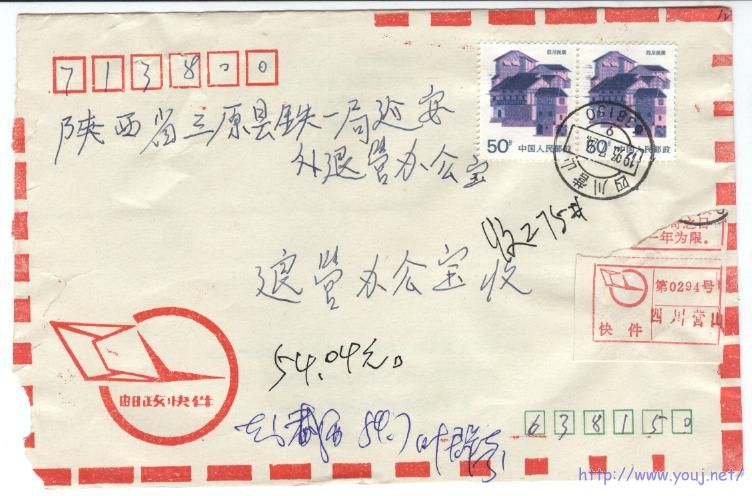 713800
陕西省三原县铁一局延安
外退管办公室
四川民居
四川民居
50分 中国人民邮政
50分 中国人民邮政
638150
四川营山
收275#
退管办公室收
一年为限。
第0294号
四川营山
快件
54.04元
邮政快件
638150
http://www.youj.net/